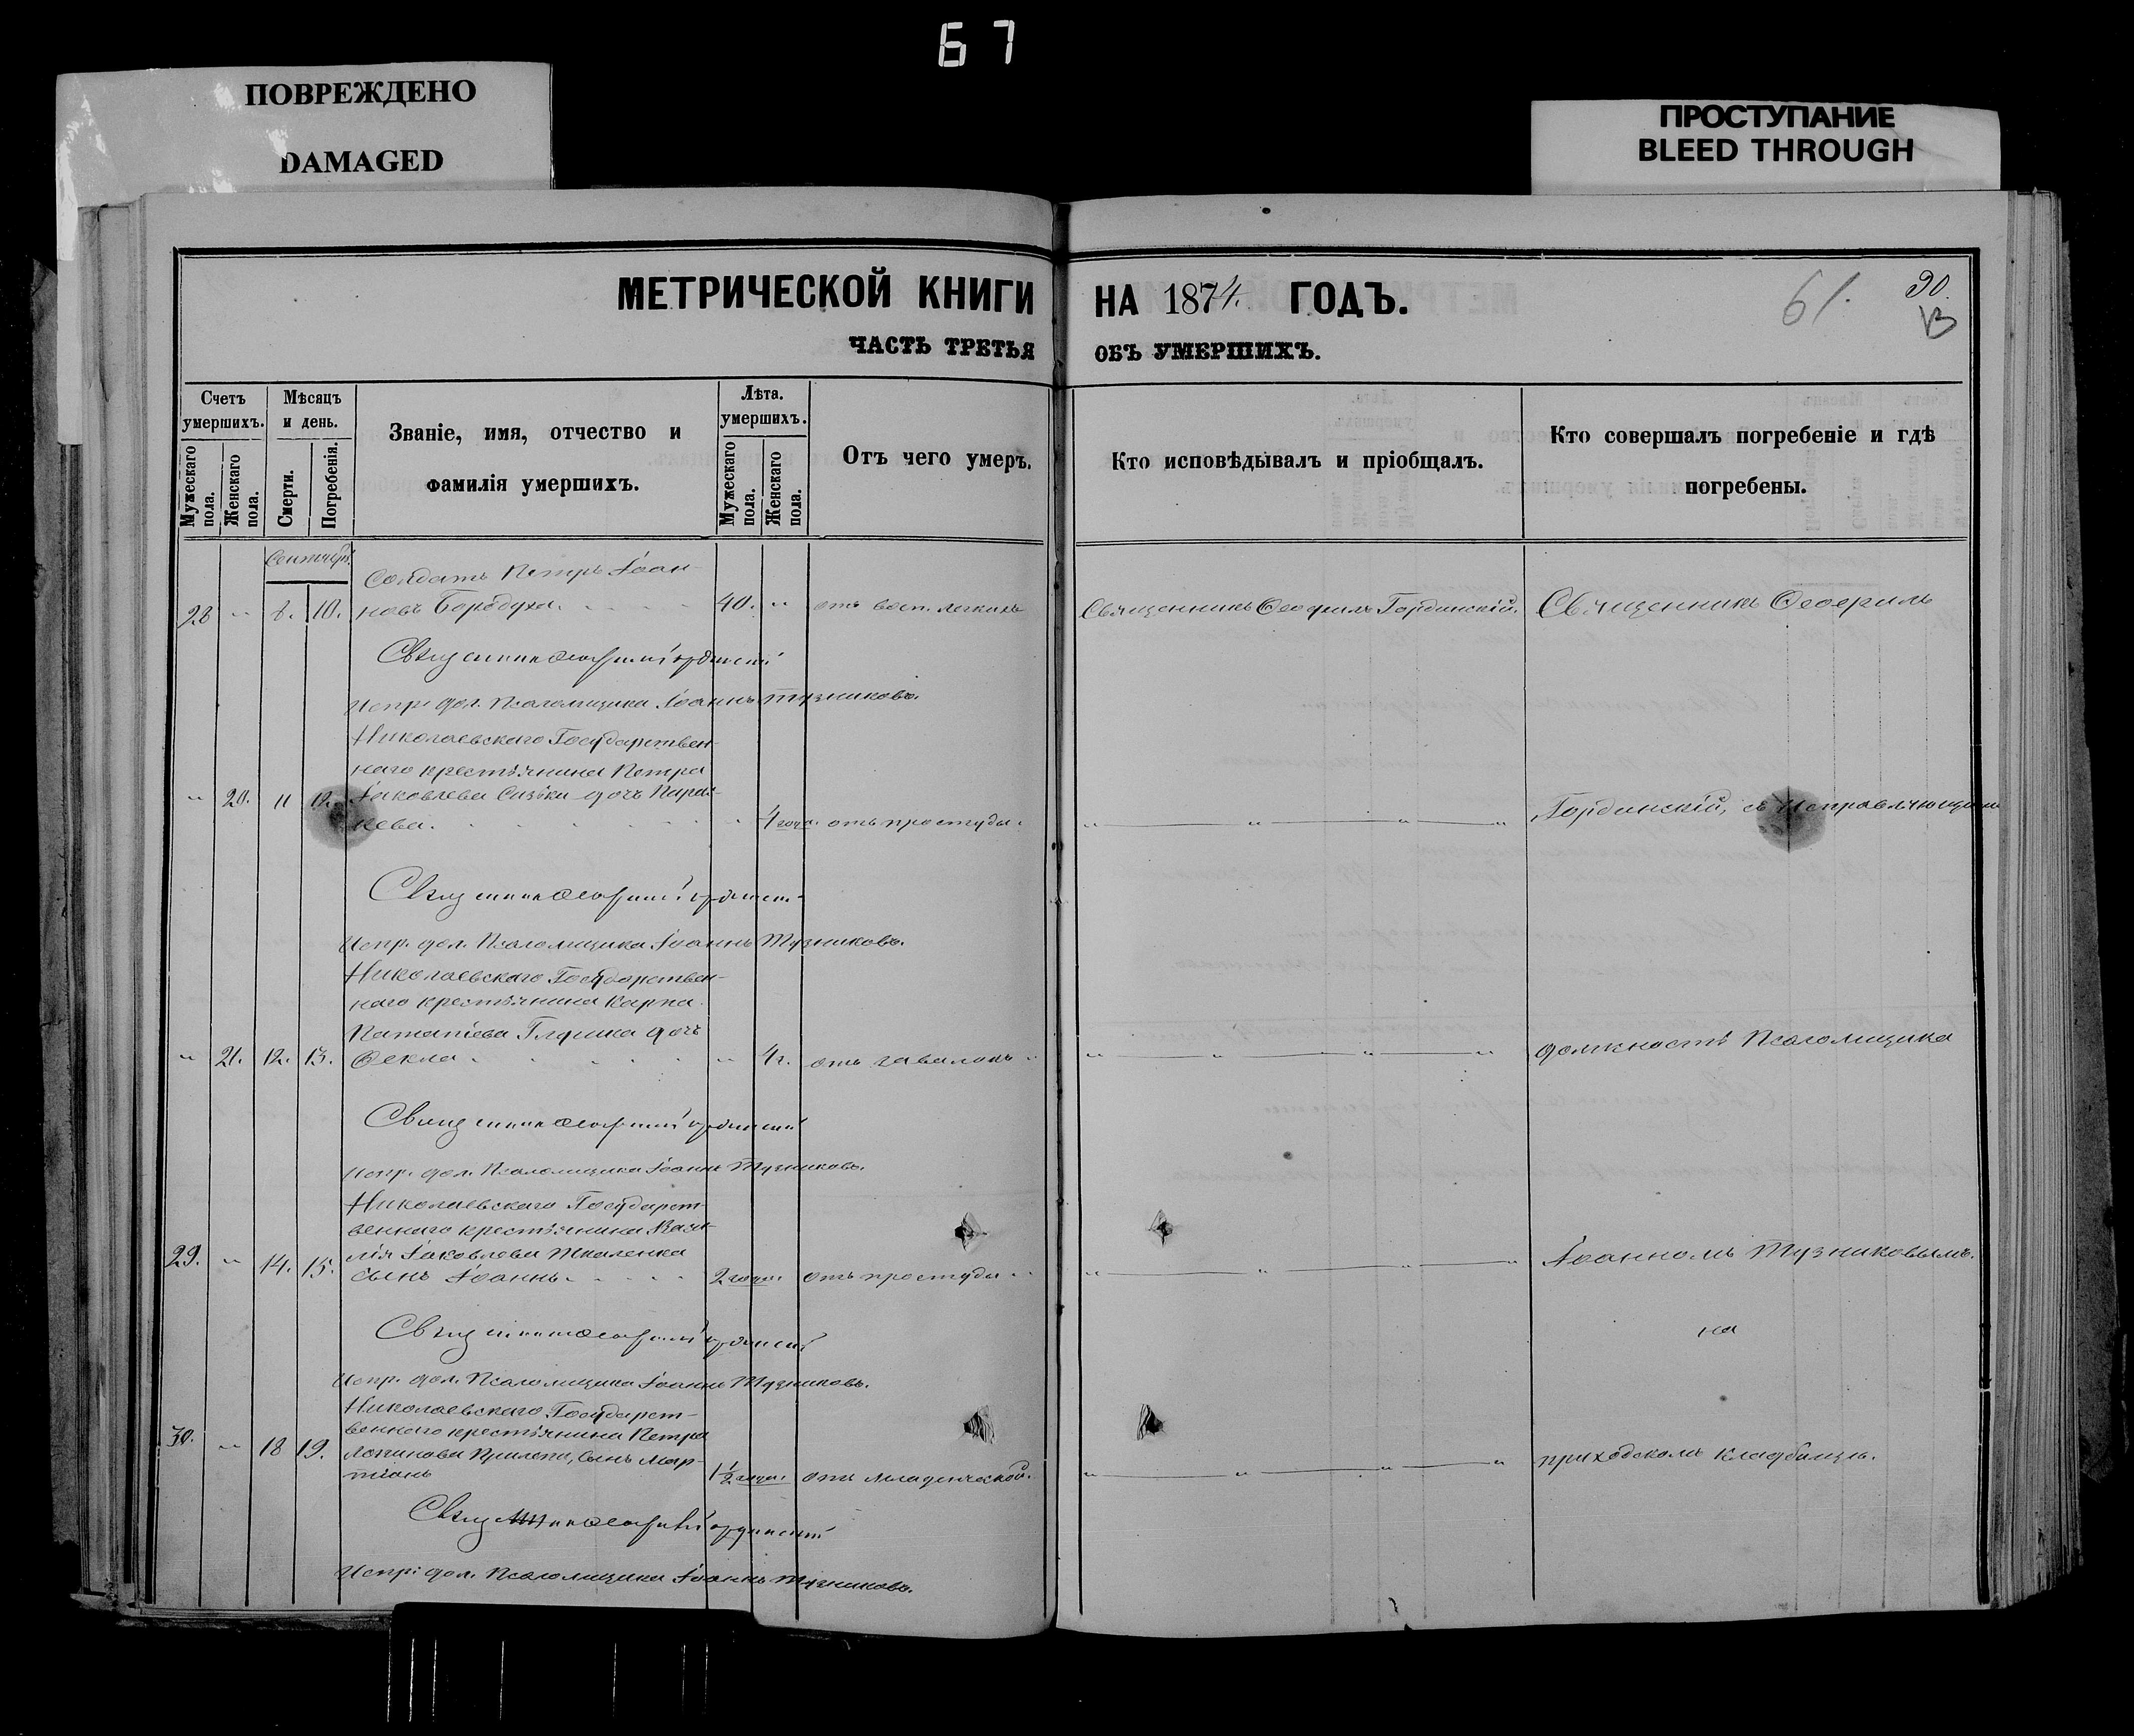 67
ПОВРЕЖДЕНО
DAMAGED
ПРОСТУПАНИЕ
BLEED THROUGH
МЕТРИЧЕСКОЙ КНИГИ НА 1874. ГОДЪ.
61.
90.
ЧАСТЬ ТРЕТЬЯ ОБЪ УМЕРШИХЪ.
Счетъ умершихъ.
Мужескаго пола.
Женскаго пола.
Мѣсяцъ и день.
Смерти.
Погребенія.
Званіе, имя, отчество и
фамилія умершихъ.
Лѣта. умершихъ.
Мужескаго пола.
Женскаго пола.
Отъ чего умеръ.
Кто исповѣдывалъ и пріобщалъ.
Кто совершалъ погребеніе и гдѣ
погребены.
Солдатъ Петръ Іоан-
28 " 8. 10. новъ Бородуха. 40. " отъ восп. легкихъ Священникъ Ѳеофилъ Гординскій. Священникъ Ѳеофилъ
Священникъ Ѳеофилъ Гординскій
Испр. дол. Псаломщика Іоаннъ Тузниковъ.
Николаевскаго Государствен-
наго крестьянина Петра
" 20. 11 12. Іаковлева дочь Парас-
кева. " 4 года. отъ простуды. Гординскій, съ исправляющимъ
Священникъ Ѳеофилъ Гординскій
Испр. дол. Псаломщика Іоаннъ Тузниковъ.
Николаевскаго Государствен-
наго крестьянина Карпа
Патапіева дочь
" 21. 12. 13. Ѳекла " 4 г. отъ завалокъ " должность Псаломщика
Священникъ Ѳеофилъ Гординскій
Испр. дол. Псаломщика Іоаннъ Тузниковъ.
Николаевскаго Государст-
веннаго крестьянина Васи-
лія Іаковлева Шкаленка
29. " 14. 15. сынъ Іоаннъ. 2 года. отъ простуды " Іоанномъ Тузниковымъ.
Священникъ Ѳеофилъ Гординскій
на
Испр. дол. Псаломщика Іоаннъ Тузниковъ.
Николаевскаго Государст-
веннаго крестьянина Петра
30. " 18 19. Логинова сынъ Мар-
тіанъ 1½ года. отъ младенческой. приходскомъ кладбищѣ.
Священникъ Ѳеофилъ Гординскій
Испр. дол. Псаломщика Іоаннъ Тузниковъ.